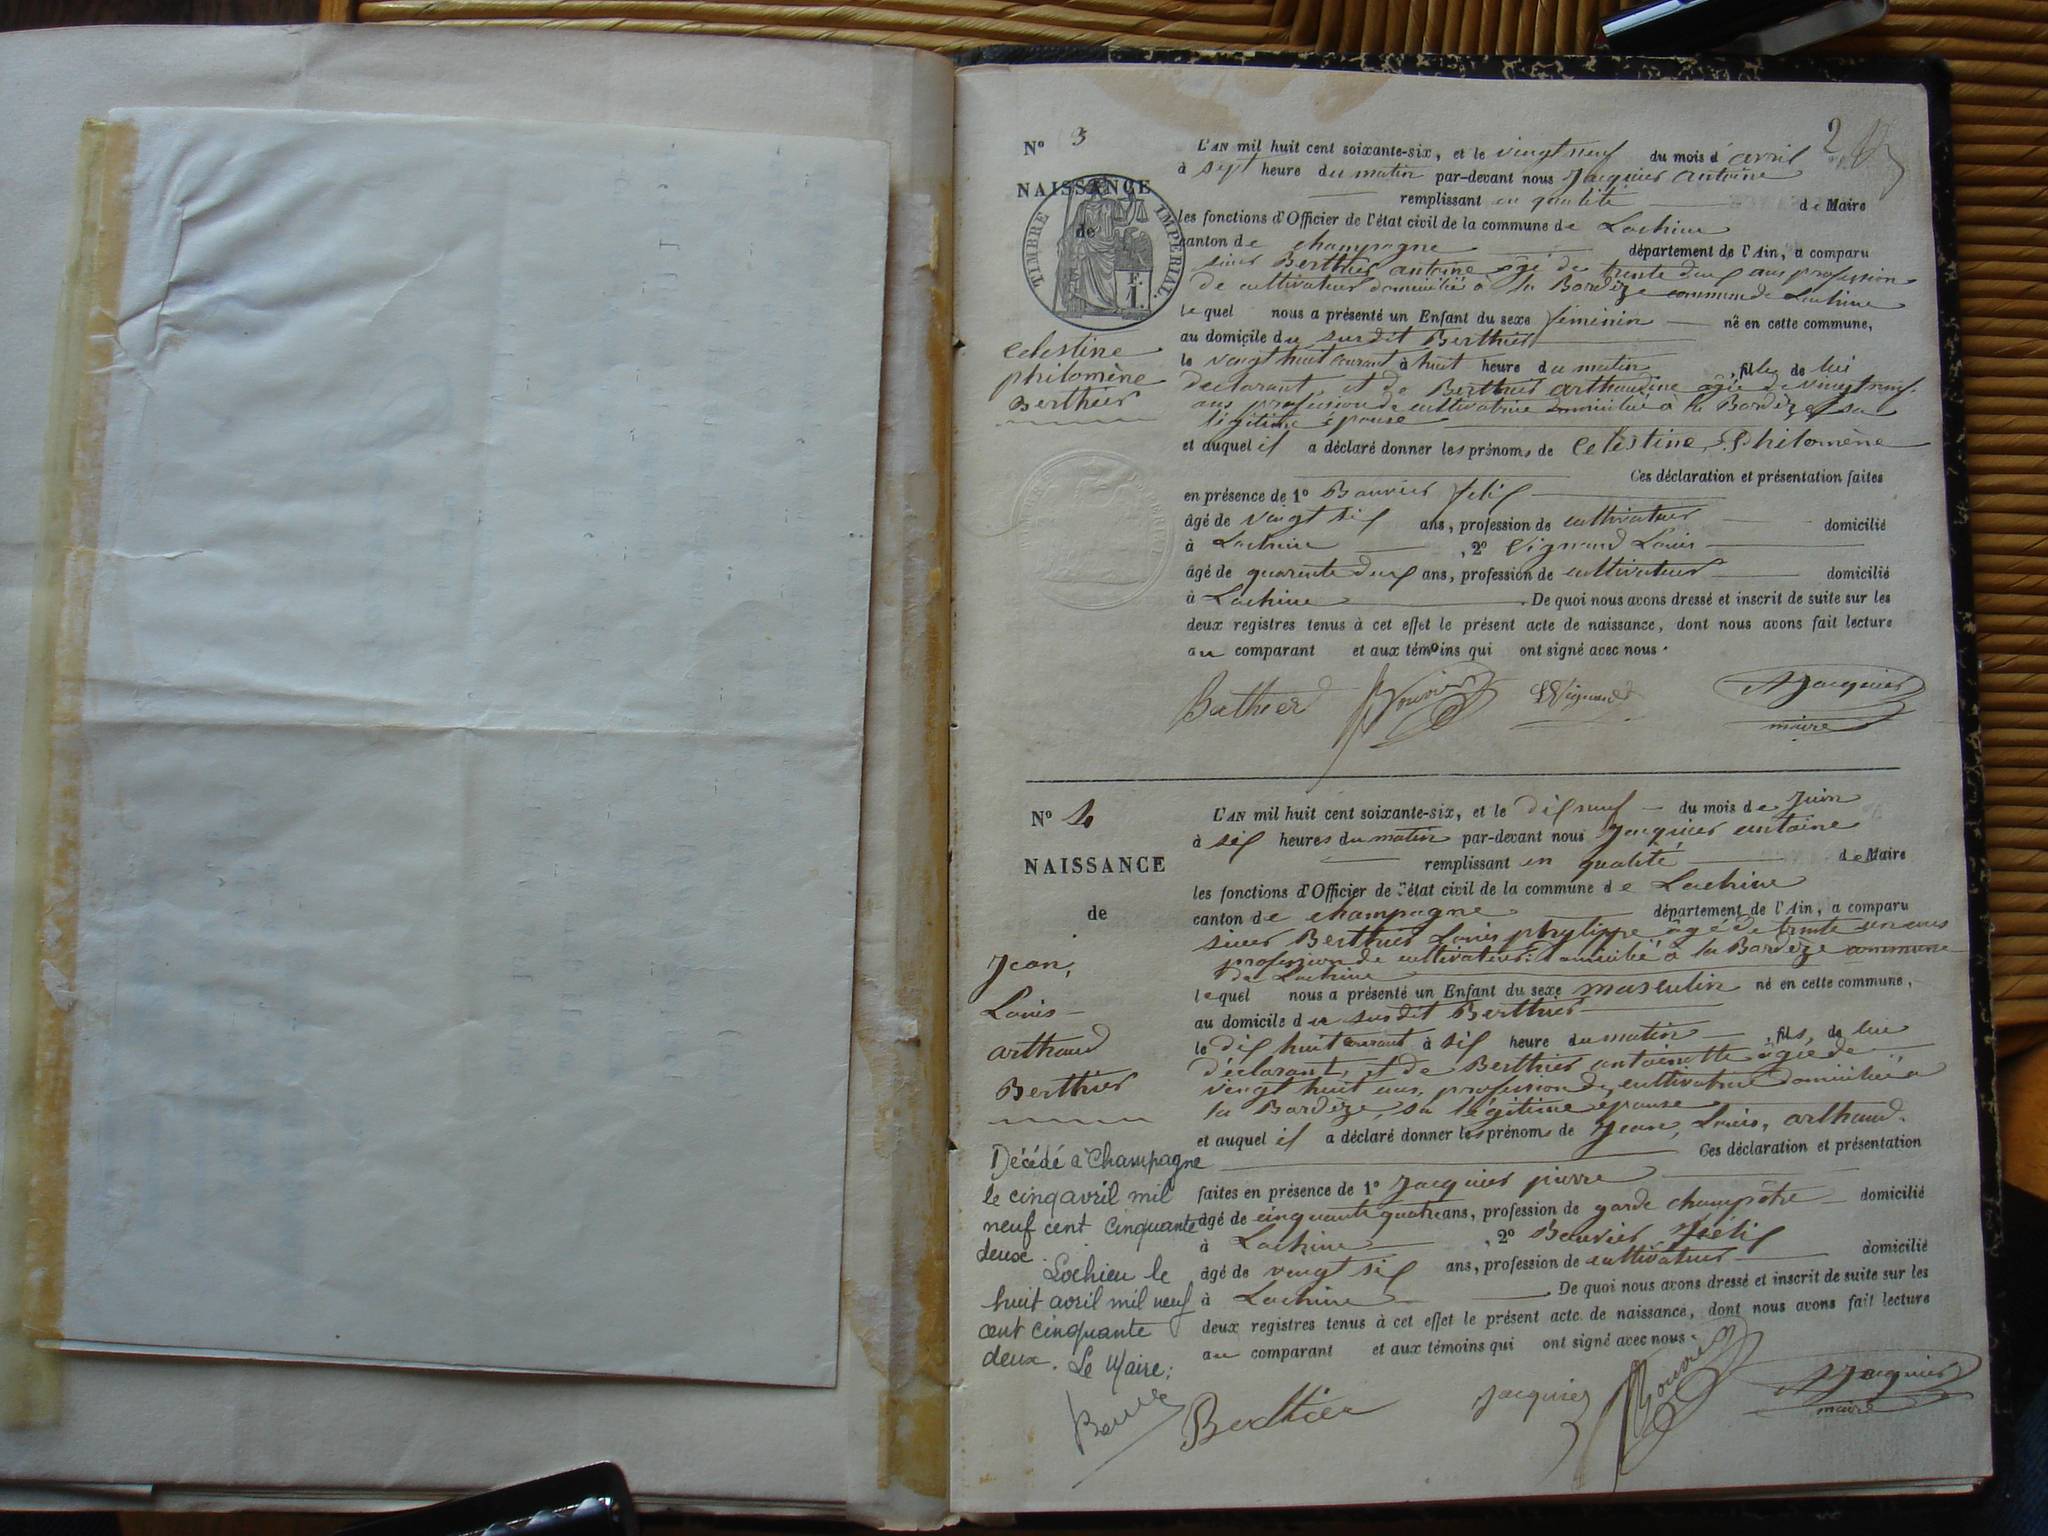 2
Nº 3
NAISSANCE
de
TIMBRE IMPÉRIAL.
F. 1.
Celestine
philomène
Berthier
L'AN mil huit cent soixante-six, et le vingt neuf du mois d'avril
à sept heure du matin par-devant nous Jacquier Antoine
remplissant en qualité de Maire
les fonctions d'Officier de l'état civil de la commune de Lochieu
canton de champagne département de l'Ain, a comparu
sieur Berthier antoine âgé de trente deux ans profession
de cultivateur domicilié à la Bardèze commune de Lochieu
lequel nous a présenté un Enfant du sexe féminin né en cette commune,
au domicile du susdit Berthier
le vingt huit courant à huit heure du matin, fille de lui
déclarant et de Berthier arthaudine âgée de vingt neuf
ans profession de cultivatrice domiciliée à la Bardèze, sa
légitime épouse
et auquel il a déclaré donner les prénoms de Celestine, Philomène
Ces déclaration et présentation faites
en présence de 1º Bouvier félix
âgé de vingt six ans, profession de cultivateur domicilié
à Lochieu, 2º Vignand Louis
âgé de quarente deux ans, profession de cultivateur domicilié
à Lochieu. De quoi nous avons dressé et inscrit de suite sur les
deux registres tenus à cet effet le présent acte de naissance, dont nous avons fait lecture
au comparant et aux témoins qui ont signé avec nous.
Berthier Bouvier L Vignand A Jacquier
maire
Nº 4
NAISSANCE
de
Jean,
Louis
arthaud
Berthier
L'AN mil huit cent soixante-six, et le dix neuf du mois de Juin
à six heures du matin par-devant nous Jacquier antoine
remplissant en qualité de Maire
les fonctions d'Officier de l'état civil de la commune de Lochieu
canton de champagne département de l'Ain, a comparu
sieur Berthier Louis phylippe âgé de trente un ans
profession de cultivateur domicilié à la Bardèze commune
de Lochieu
lequel nous a présenté un Enfant du sexe masculin né en cette commune,
au domicile du susdit Berthier
le dix huit courant à six heure du matin, fils, de lui
déclarant, et de Berthier antoinette âgée de
vingt huit ans, profession de cultivatrice domiciliée à
la Bardèze, sa légitime épouse
et auquel il a déclaré donner les prénoms de Jean, Louis, arthaud.
Ces déclaration et présentation
faites en présence de 1º Jacquier pierre
âgé de cinquante quatre ans, profession de garde champêtre domicilié
à Lochieu, 2º Bouvier félix
âgé de vingt six ans, profession de cultivateur domicilié
à Lochieu. De quoi nous avons dressé et inscrit de suite sur les
deux registres tenus à cet effet le présent acte de naissance, dont nous avons fait lecture
au comparant et aux témoins qui ont signé avec nous.
Décédé à Champagne
le cinq avril mil
neuf cent cinquante
deux.
Lochieu le
huit avril mil neuf
cent cinquante
deux. Le Maire:
Berthier Jacquier Bouvier A Jacquier
maire